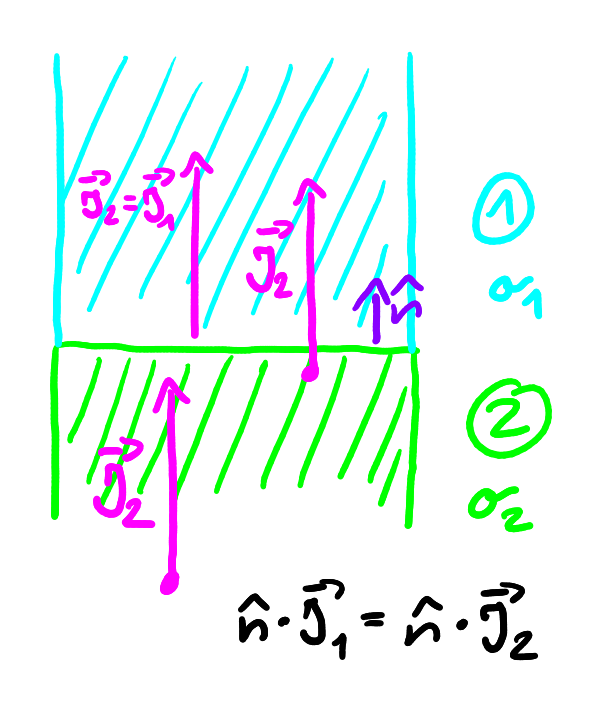 J⃗₂ = J⃗₁
J⃗₂
n̂
①
σ₁
②
σ₂
J⃗₂
n̂ · J⃗₁ = n̂ · J⃗₂